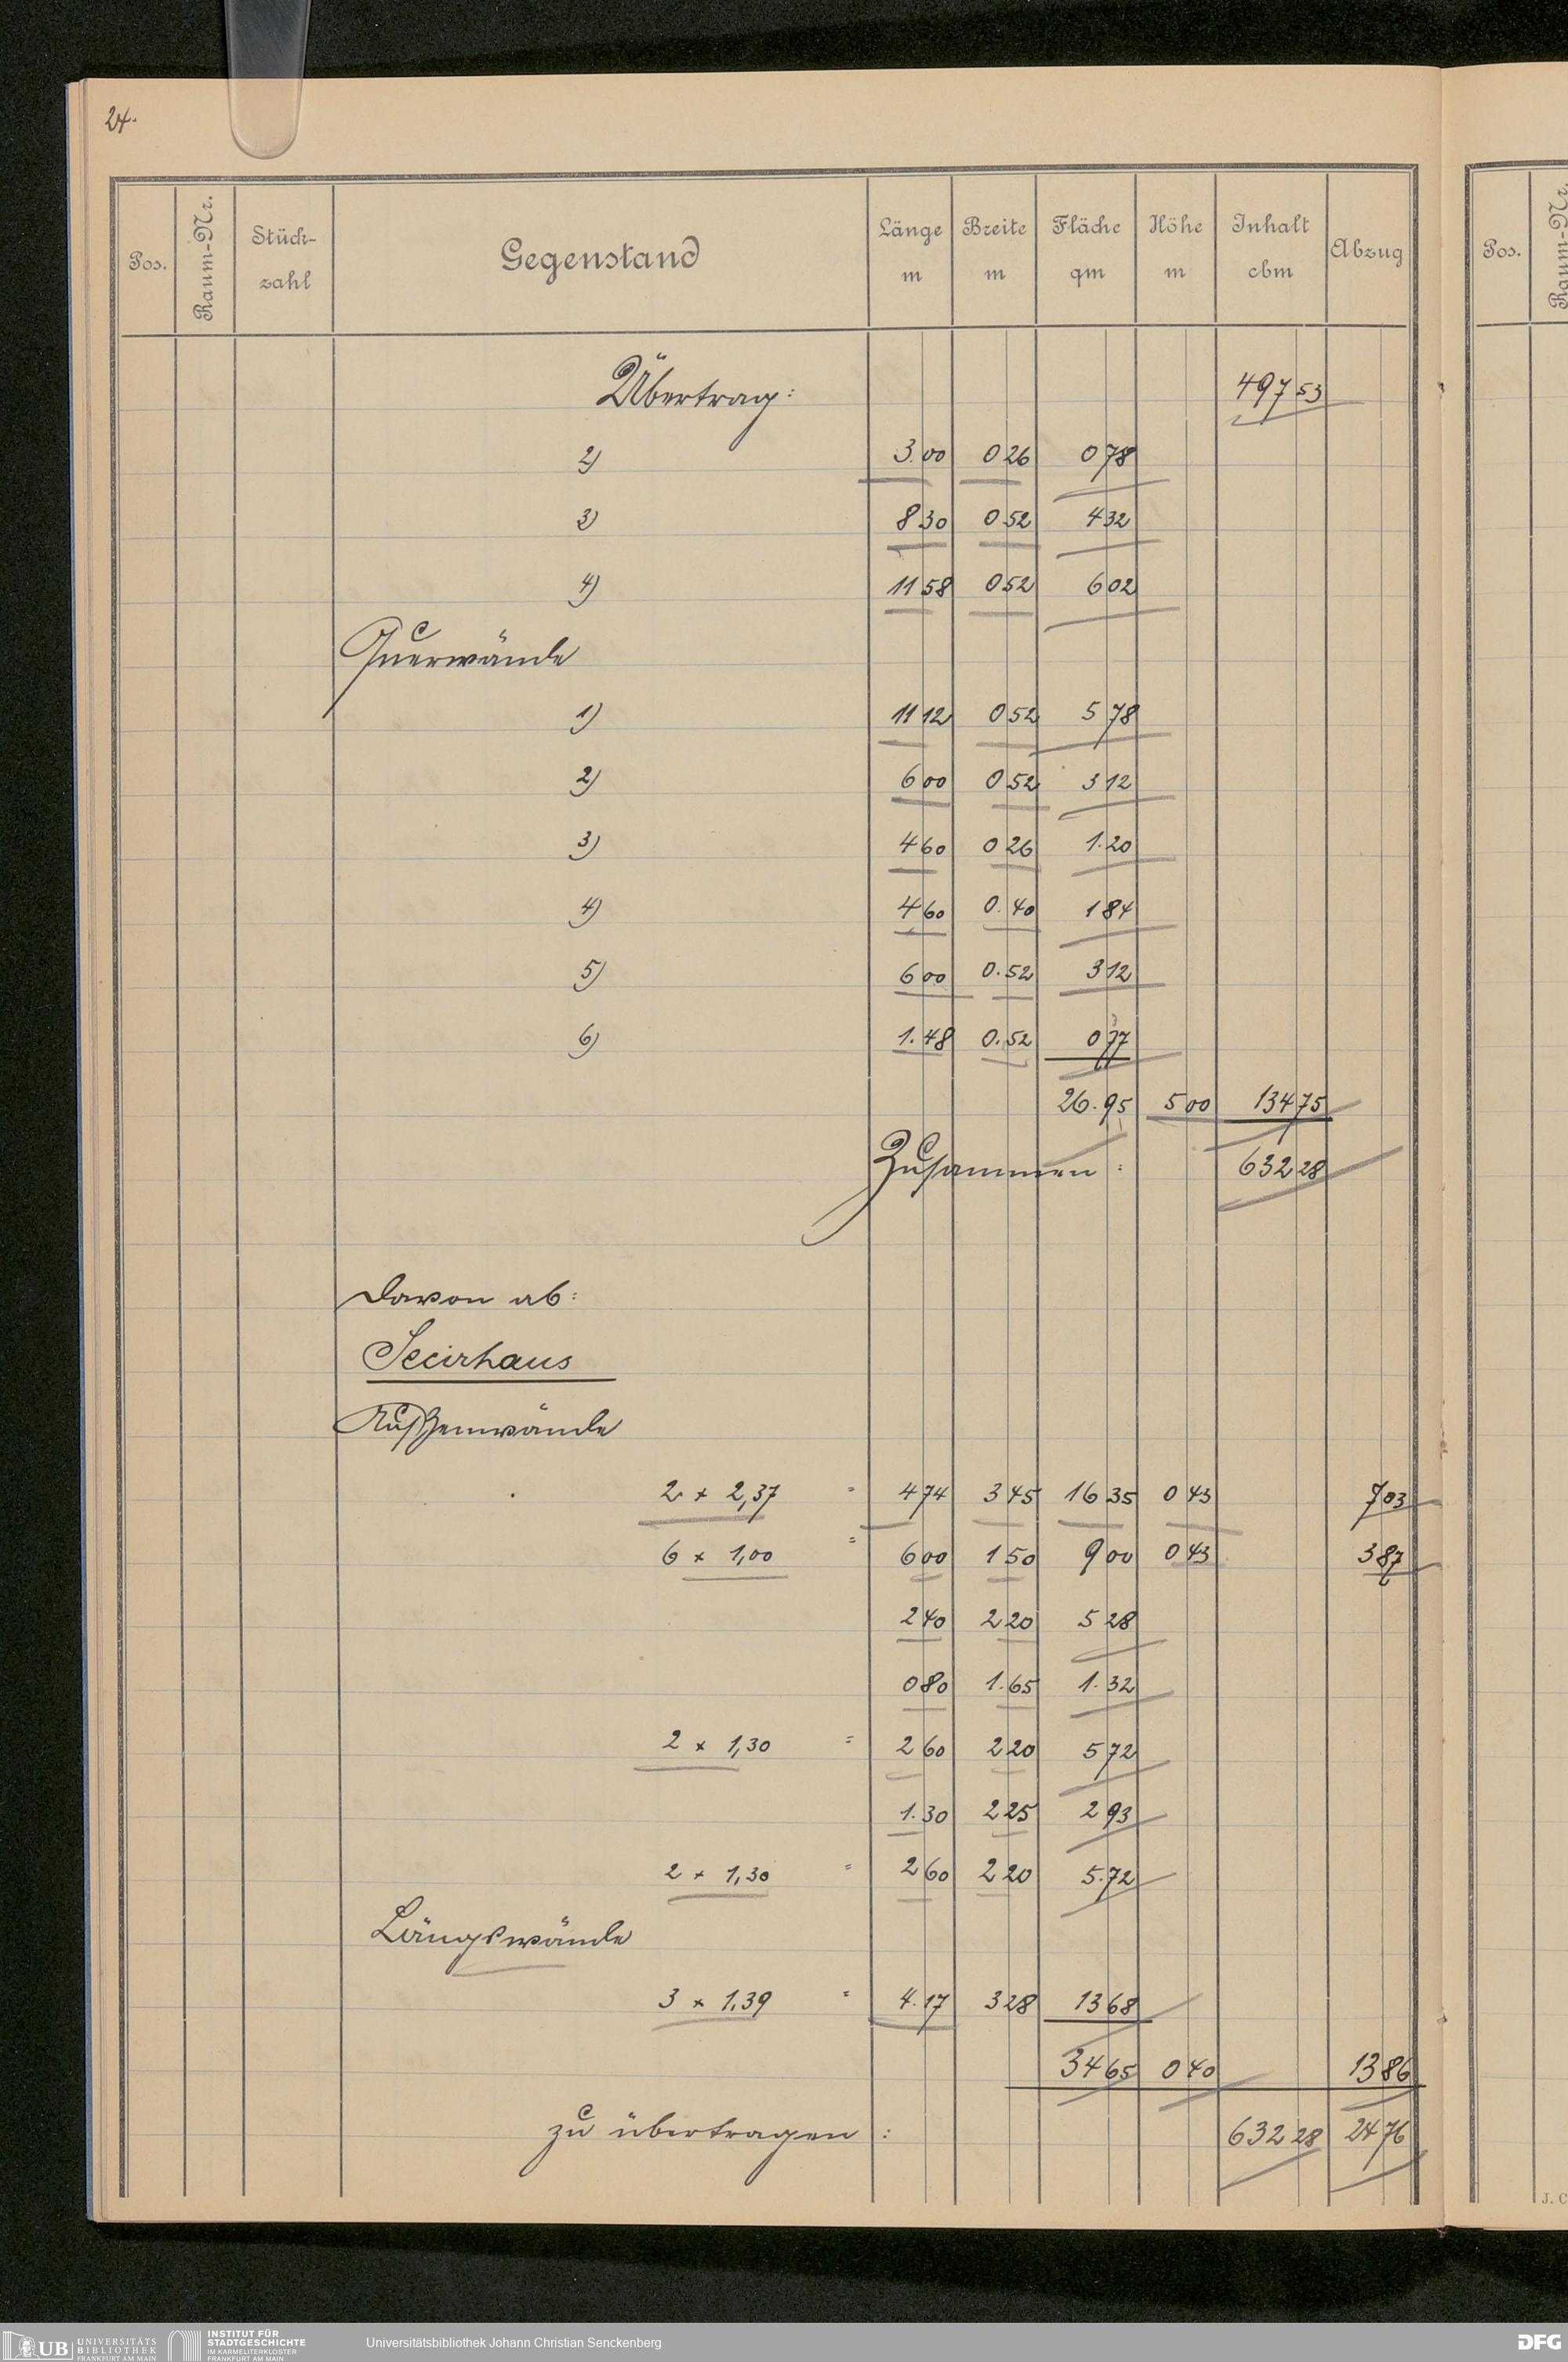 24.
Pos. Raum-Nr. Stück-zahl Gegenstand Länge m Breite m Fläche qm Höhe m Inhalt cbm Abzug Pos. Raum-Nr.
Übertrag: 497 53
2) 3.00 0 26 0 78
3) 8 30 0 52 4 32
4) 11 58 0 52 6 02
Querwände
1) 11 12 0 52 5 78
2) 6 00 0 52 3 12
3) 4 60 0 26 1.20
4) 4 60 0.40 1 84
5) 6 00 0.52 3 12
6) 1.48 0.52 0 77
26.95 5 00 134 75
Zusammen: 632 28
Davon ab:
Secirhaus
Außenwände
2 × 2,37 = 4 74 3 45 16 35 0 43 7 03
6 × 1,00 = 6 00 1 50 9 00 0 43 3 87
2 40 2 20 5 28
0 80 1.65 1.32
2 × 1,30 = 2 60 2 20 5 72
1.30 2 25 2 93
2 × 1,30 = 2 60 2 20 5.72
Längswände
3 × 1,39 = 4.17 3 28 13 68
34 65 0 40 13 86
zu übertragen: 632 28 24 76
J. C
UB UNIVERSITÄTS
BIBLIOTHEK
FRANKFURT AM MAIN
INSTITUT FÜR
STADTGESCHICHTE
IM KARMELITERKLOSTER
FRANKFURT AM MAIN
Universitätsbibliothek Johann Christian Senckenberg
DFG